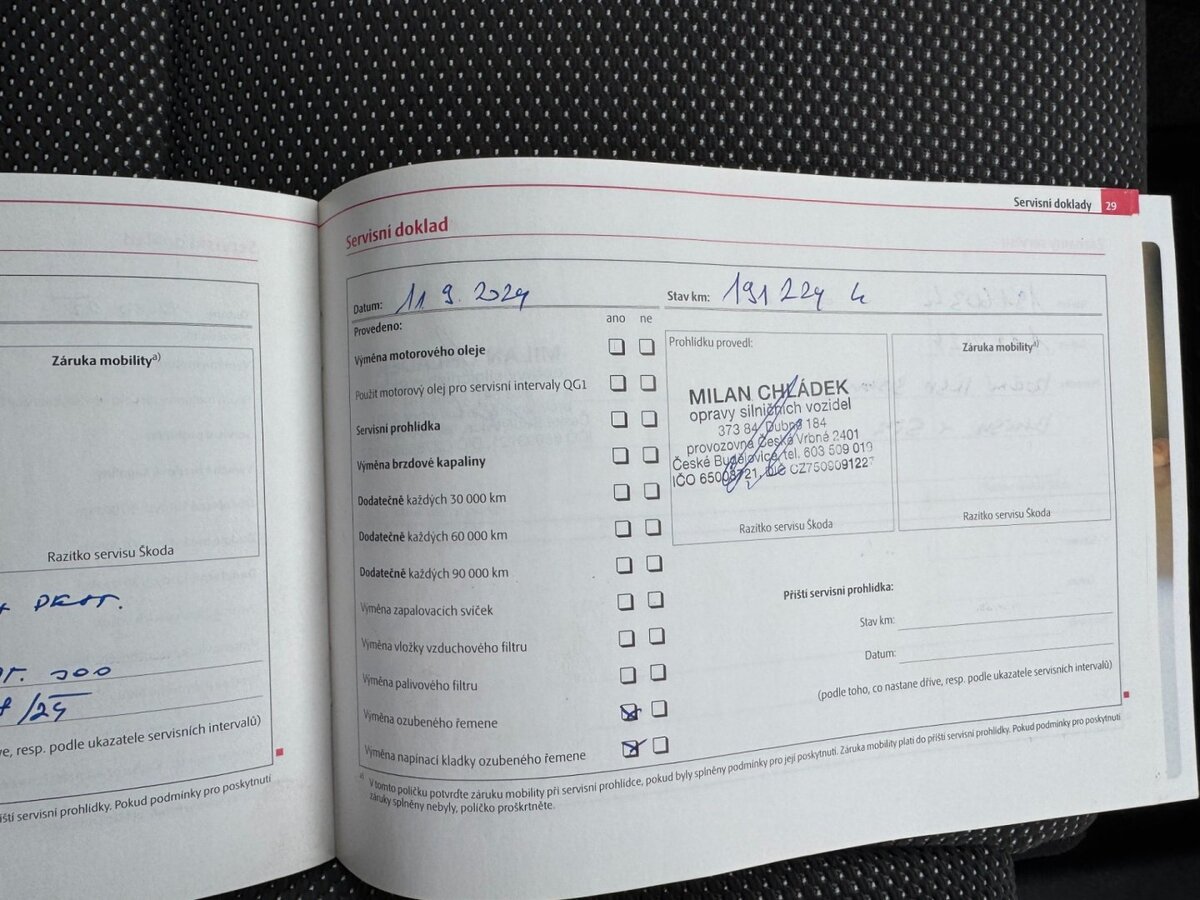 Záruka mobility a)
Razítko servisu Škoda
/24
resp. podle ukazatele servisních intervalů)
servisní prohlídky. Pokud podmínky pro poskytnutí
Servisní doklady 29
Servisní doklad
Datum: 11 9. 2024 Stav km: 191 224 k
Provedeno: ano ne
Výměna motorového oleje
Použit motorový olej pro servisní intervaly QG1
Servisní prohlídka
Výměna brzdové kapaliny
Dodatečně každých 30 000 km
Dodatečně každých 60 000 km
Dodatečně každých 90 000 km
Výměna zapalovacích svíček
Výměna vložky vzduchového filtru
Výměna palivového filtru
Výměna ozubeného řemene
Výměna napínací kladky ozubeného řemene
Prohlídku provedl:
MILAN CHLÁDEK
opravy silničních vozidel
373 84 Dubné 184
provozovna České Vrbné 2401
České Budějovice, tel. 603 509 019
Razítko servisu Škoda
Záruka mobility a)
Razítko servisu Škoda
Příští servisní prohlídka:
Stav km:
Datum:
(podle toho, co nastane dříve, resp. podle ukazatele servisních intervalů)
a) V tomto políčku potvrďte záruku mobility při servisní prohlídce, pokud byly splněny podmínky pro její poskytnutí. Záruka mobility platí do příští servisní prohlídky. Pokud podmínky pro poskytnutí
záruky splněny nebyly, políčko proškrtněte.